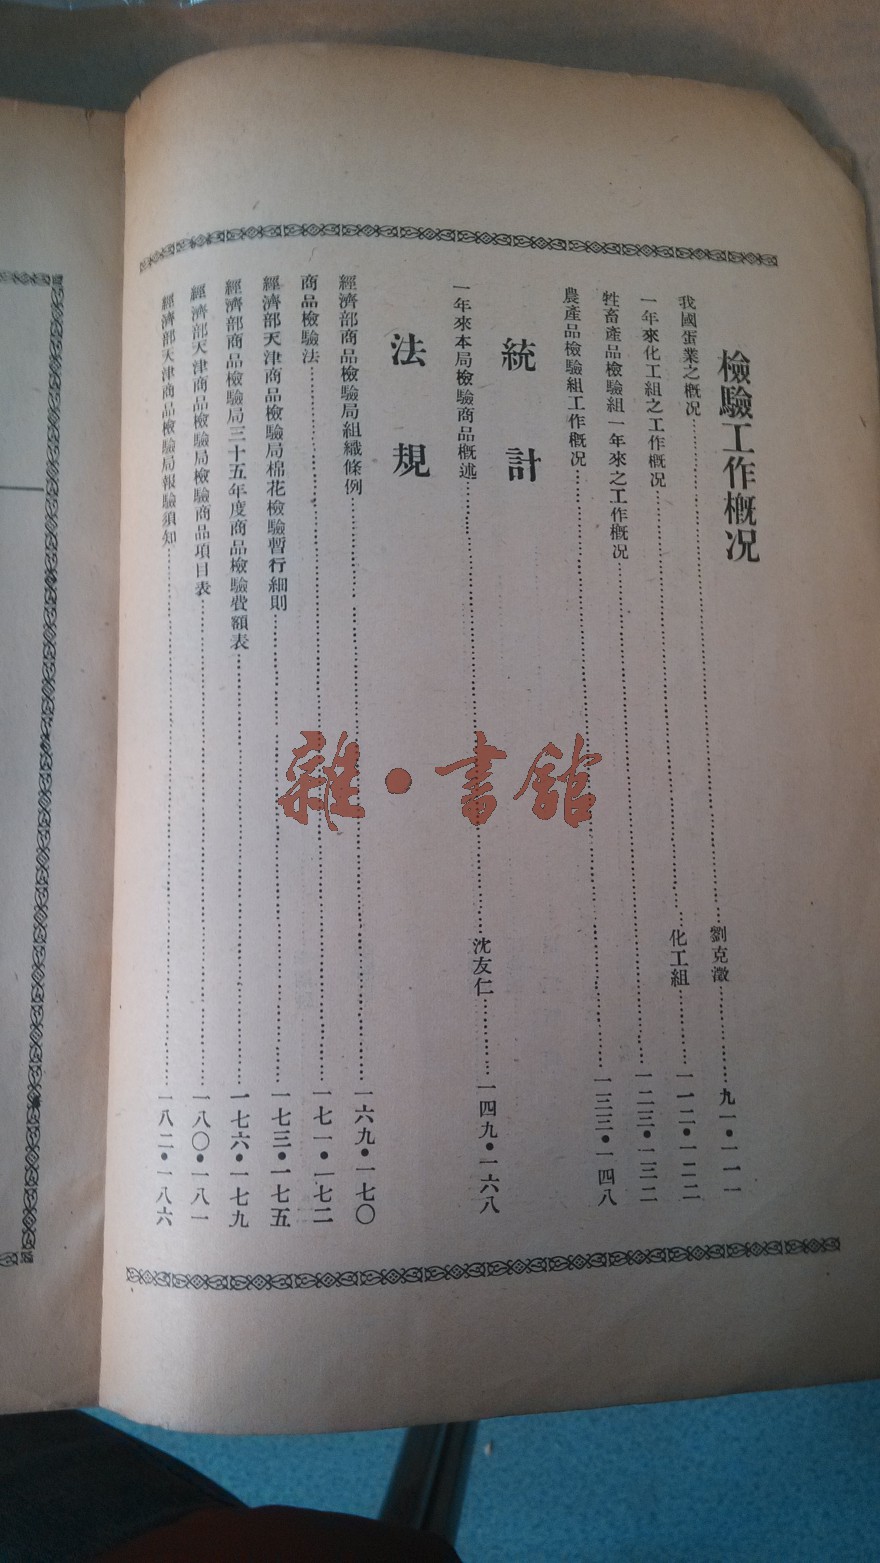 檢驗工作概况
我國蛋業之概况 劉克澂 九一・一一一
一年來化工組之工作概况 化工組 一一二・一二二
牲畜產品檢驗組一年來之工作概况 一二三・一三二
農產品檢驗組工作概况 一三三・一四八
統計
一年來本局檢驗商品概述 沈友仁 一四九・一六八
法規
經濟部商品檢驗局組織條例 一六九・一七〇
商品檢驗法 一七一・一七二
經濟部天津商品檢驗局棉花檢驗暫行細則 一七三・一七五
經濟部商品檢驗局三十五年度商品檢驗費額表 一七六・一七九
經濟部天津商品檢驗局檢驗商品項目表 一八〇・一八一
經濟部天津商品檢驗局報驗須知 一八二・一八六
雜・書館